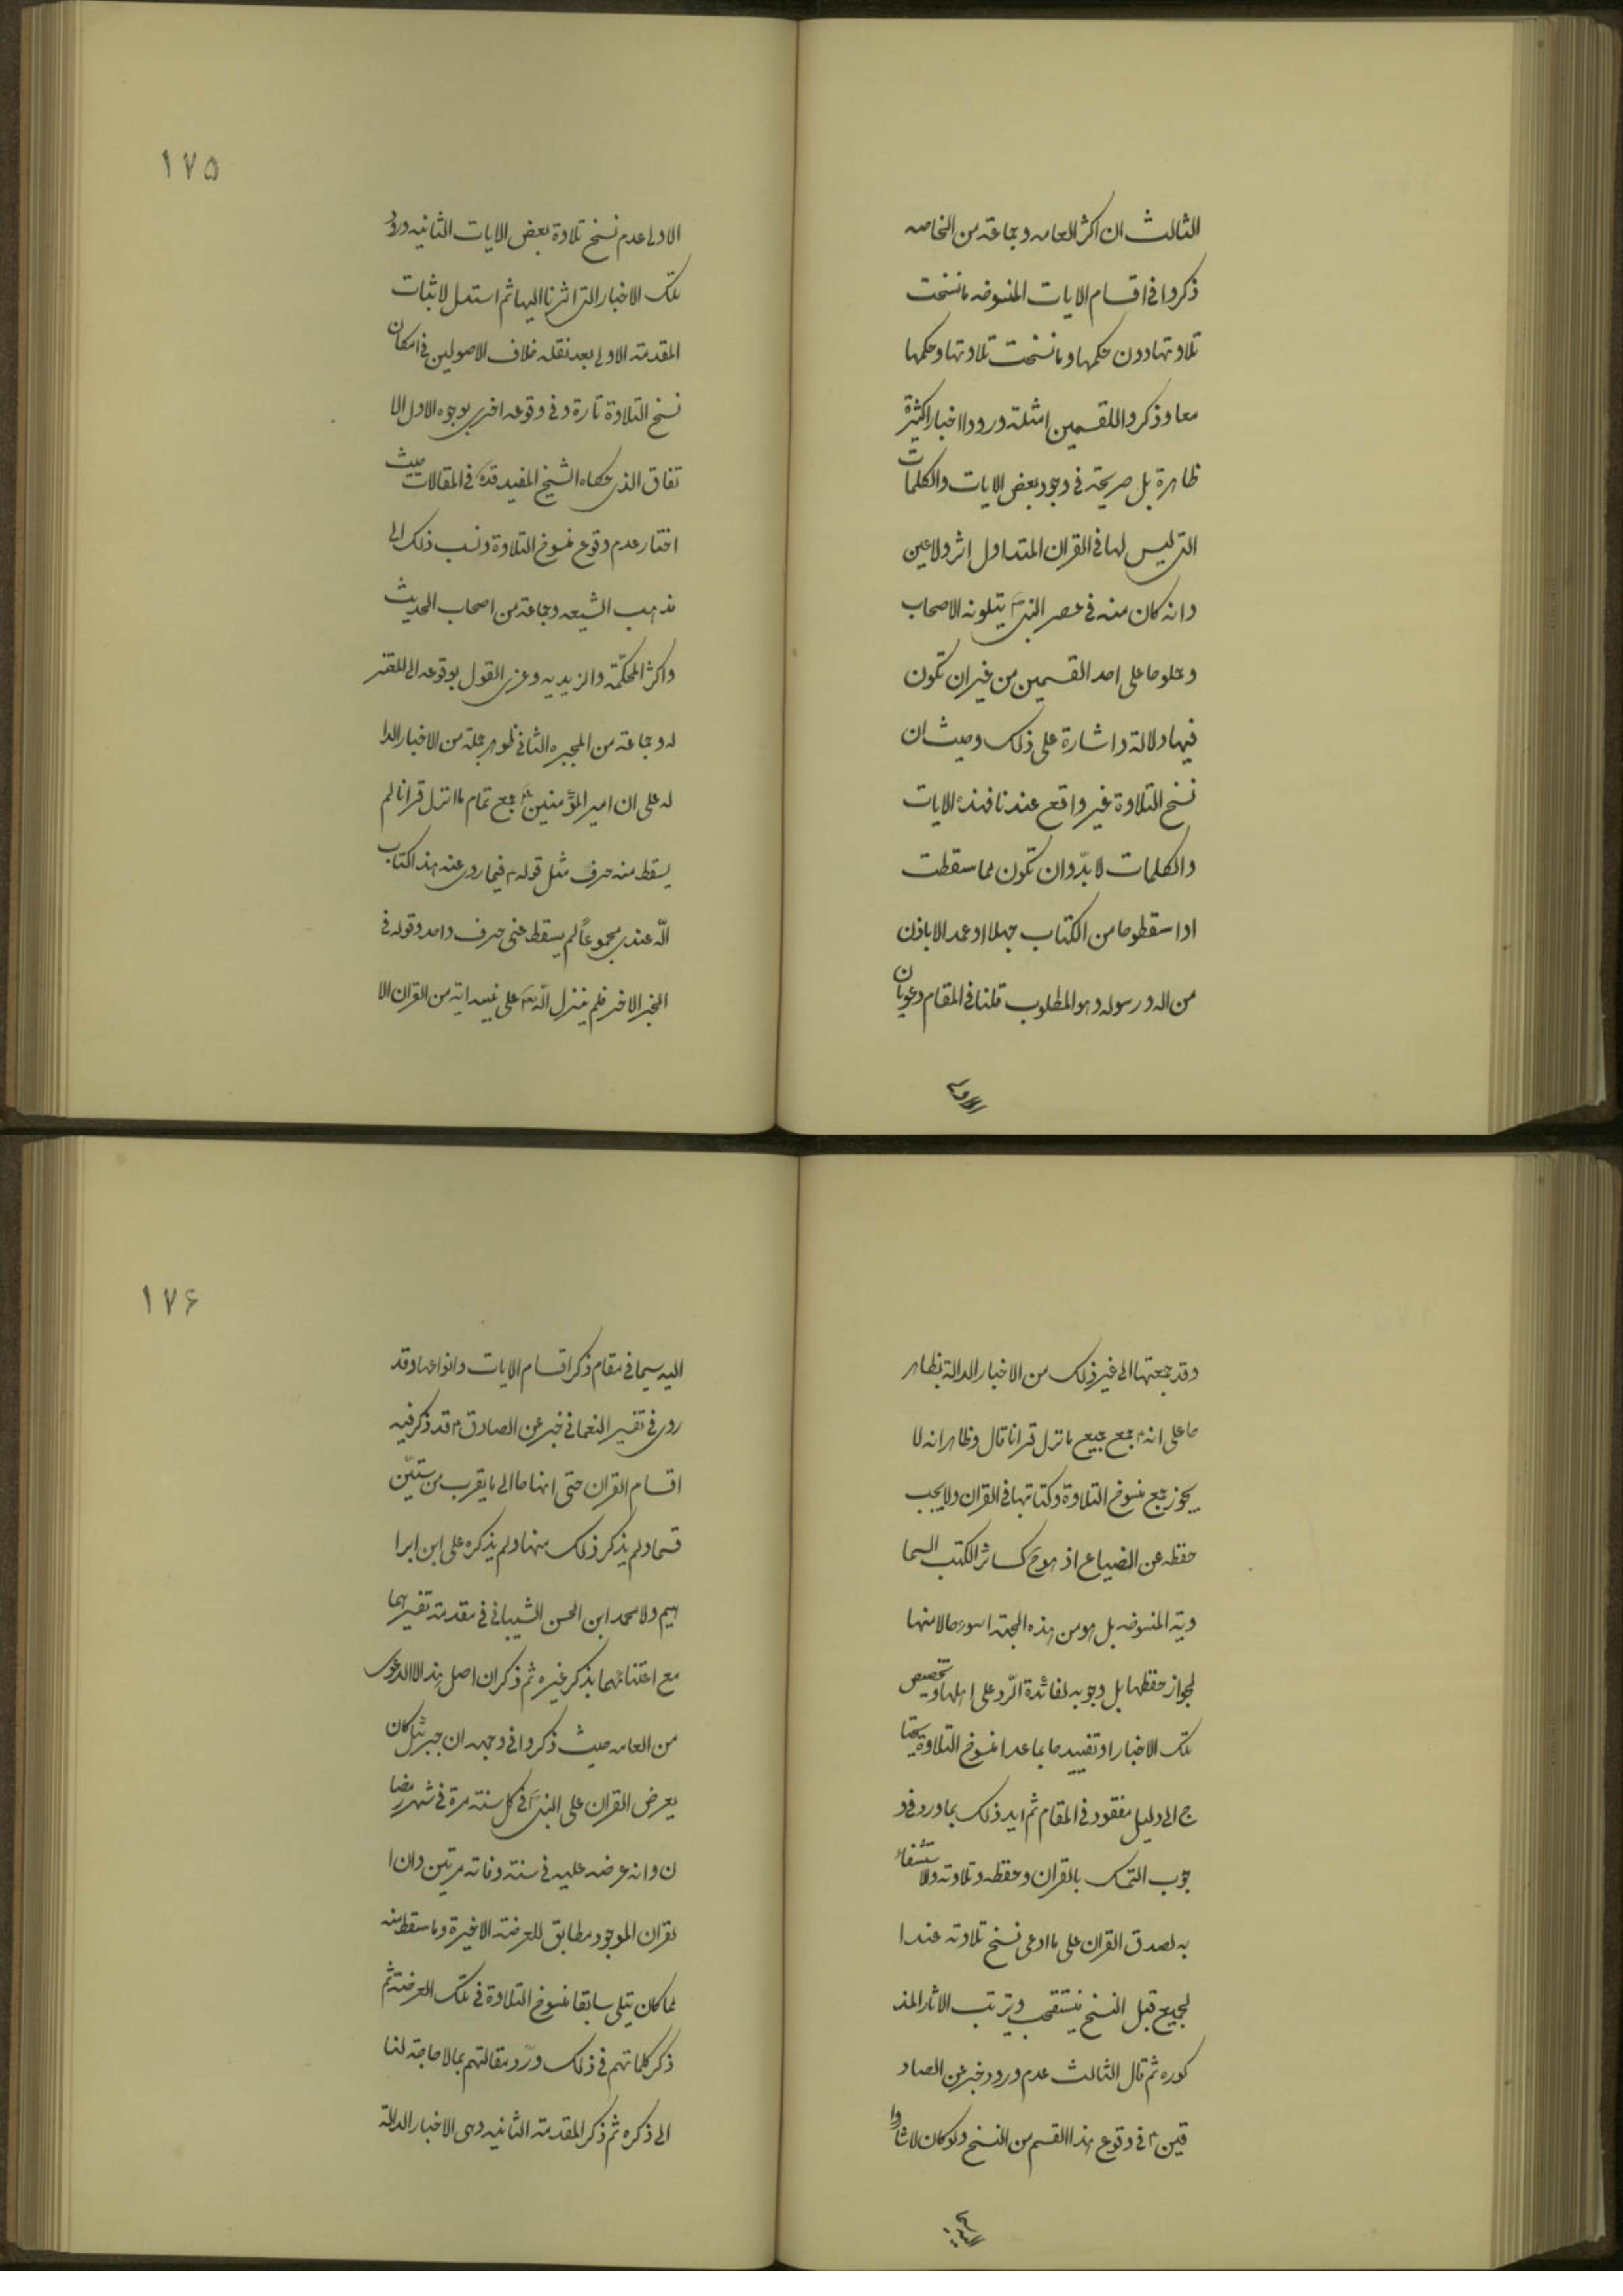 الثالث ان اكثر العامه وجماعة من الخاصه
ذكروا فى اقسام الايات المنسوخه ما نسخت
تلاوتها دون حكمها وما نسخت تلاوتها وحكمها
معا وذكروا للقسمين امثلة وردود الاخبار الكثيرة
ظاهرة بل صريحة فى وجود بعض الايات والكلمات
التى ليس لها فى القران المتداول اثر ولا عين
وانه كان منه فى عصر النبى ص يتلونه الاصحاب
وحملوها على احد القسمين من غير ان تكون
فيها دلالة واشارة على ذلك وحيث ان
نسخ التلاوة غير واقع عندنا فهذه الايات
والكلمات لا بدّ وان تكون مما سقطت
او اسقطوها من الكتاب جهلا او عمدا لا باذن
من اله ورسوله وهو المطلوب قلنا فى المقام دعويان
الاولى
١٧٥
الاولى عدم نسخ تلاوة بعض الايات الثانيه ورود
تلك الاخبار التى اشرنا اليها ثم استدل لاثبات
المقدمة الاولى بعد نقله خلاف الاصولين فى امكان
نسخ التلاوة تارة وفى وقوعه اخرى بوجوه الاول الا
تفاق الذى حكاه الشيخ المفيد قده فى المقالات حيث
اختار عدم وقوع منسوخ التلاوة ونسب ذلك الى
مذهب الشيعه وجماعة من اصحاب الحديث
واكثر المحكّمة والزيديه وعزى القول بوقوعه الى المعتز
له وجماعة من المجبره الثانى ظواهر جملة من الاخبار الدا
له على ان امير المؤمنين ع جمع تمام ما انزل قرانا لم
يسقط منه حرف مثل قوله ع فيما روى عنه هذا كتاب
الله عندى مجموعاً لم يسقط عنى حرف واحد وقوله فى
الخبر الاخر فلم ينزل الله تع على نبيه اية من القران الا
وقد جمعتها الى غير ذلك من الاخبار الدالة بظاهر
ها على انه ع جمع جميع ما نزل قرانا قال وظاهر انه لا
يجوز جمع منسوخ التلاوة وكتابتها فى القران ولا يجب
حفظه عن الضياع اذ هو ح كسائر الكتب السما
ويه المنسوخه بل هو من هذه الجهة اسوء حالا منها
لجواز حفظها بل وجوبه لفائدة الرّد على اهلها وتخصيص
تلك الاخبار او تقييدها بما عدا منسوخ التلاوة يحتا
ج الى دليل مفقود فى المقام ثم ايد ذلك بما ورد فى و
جوب التمسك بالقران وحفظه وتلاوته والاستشفاء
به لصدق القران على ما ادعى نسخ تلاوته عند ا
لجميع قبل النسخ فيستصحب ويترتب الاثار المذ
كوره ثم قال الثالث عدم ورود خبر عن الصاد
قين ع فى وقوع هذا القسم من النسخ ولو كان لاشاروا
اليه سيما
١٧۶
اليه سيما فى مقام ذكر اقسام الايات وانواعها وقد
روى فى تفسير النعمانى خبر عن الصادق ع قد ذكر فيه
اقسام القران حتى انهاها الى ما يقرب من ستّين
قسما ولم يذكر ذلك منها ولم يذكره على ابن ابرا
هيم ولا محمد ابن الحسن الشيبانى فى مقدمة تفسيرهما
مع اعتنائهما بذكر غيره ثم ذكر ان اصل هذا الادعوى
من العامه حيث ذكروا فى وجهه ان جبرئيل كان
يعرض القران على النبى ص فى كل سنة مرة فى شهر رمضا
ن وانه عرضه عليه فى سنة وفاته مرتين وان ا
لقران الموجود مطابق للعرضة الاخيرة وما سقط منه
مما كان يتلى سابقا منسوخ التلاوة فى تلك العرضة ثم
ذكر كلماتهم فى ذلك وردّ مقالتهم بما لا حاجة لنا
الى ذكره ثم ذكر المقدمة الثانيه وهى الاخبار الدالة